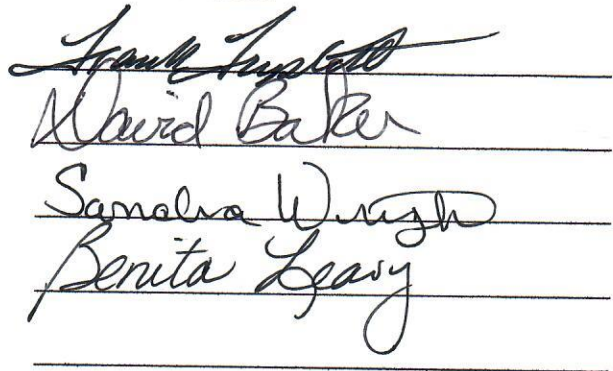 Frank
David Baker
Sandra Wright
Benita Leavy